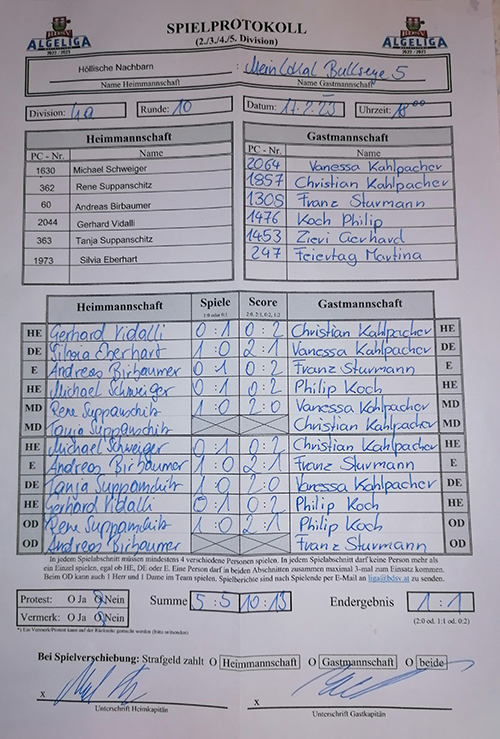 BDSV ALGELIGA 2022 / 2023
SPIELPROTOKOLL
(2./3./4./5. Division)
BDSV ALGELIGA 2022 / 2023
Höllische Nachbarn : Mein Lokal Bullseye 5
Name Heimmannschaft Name Gastmannschaft
Division: 4a Runde: 10 Datum: Uhrzeit: 18 00
Heimmannschaft
PC - Nr. Name
1630 Michael Schweiger
362 Rene Suppanschitz
60 Andreas Birbaumer
2044 Gerhard Vidalli
363 Tanja Suppanschitz
1973 Silvia Eberhart
Gastmannschaft
PC - Nr. Name
2064 Vanessa Kahlpacher
1857 Christian Kahlpacher
1308 Franz Sturmann
1476 Koch Philip
1453 Zieri Gerhard
247 Feiertag Martina
Heimmannschaft Spiele Score Gastmannschaft
1:0 oder 0:1 2:0, 2:1, 0:2, 1:2
HE Gerhard Vidalli 0:1 0:2 Christian Kahlpacher HE
DE Silvia Eberhart 1:0 2:1 Vanessa Kahlpacher DE
E Andreas Birbaumer 0:1 0:2 Franz Sturmann E
HE Michael Schweiger 0:1 0:2 Philip Koch HE
MD Rene Suppanschitz 1:0 2:0 Vanessa Kahlpacher MD
MD Tanja Suppanschitz Christian Kahlpacher MD
HE Michael Schweiger 0:1 0:2 Christian Kahlpacher HE
E Andreas Birbaumer 1:0 2:1 Franz Sturmann E
DE Tanja Suppanschitz 1:0 2:0 Vanessa Kahlpacher DE
HE Gerhard Vidalli 0:1 0:2 Philip Koch HE
OD Rene Suppanschitz 1:0 2:1 Philip Koch OD
OD Andreas Birbaumer Franz Sturmann OD
In jedem Spielabschnitt müssen mindestens 4 verschiedene Personen spielen. In jedem Spielabschnitt darf keine Person mehr als
ein Einzel spielen, egal ob HE, DE oder E. Eine Person darf in beiden Abschnitten zusammen maximal 3-mal zum Einsatz kommen.
Beim OD kann auch 1 Herr und 1 Dame im Team spielen. Spielberichte sind nach Spielende per E-Mail an liga@bdsv.at zu senden.
Protest: O Ja O Nein Summe 5:5 10:13 Endergebnis 1:1
Vermerk: O Ja O Nein (2:0 od. 1:1 od. 0:2)
*) Ein Vermerk/Protest kann auf der Rückseite gemacht werden (bitte ankreuzen)
Bei Spielverschiebung: Strafgeld zahlt O Heimmannschaft O Gastmannschaft O beide
x x
Unterschrift Heimkapitän Unterschrift Gastkapitän